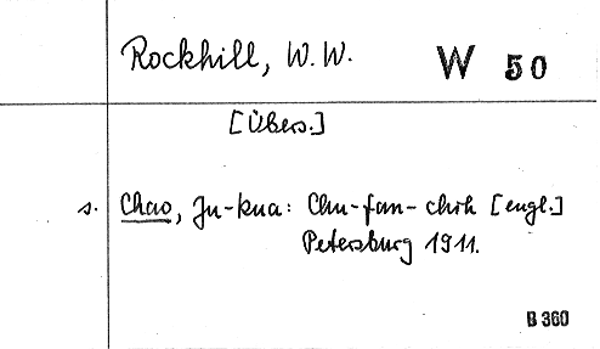 Rockhill, W. W. W 50
[Übers.]
s. Chao, Ju-kua: Chu-fan-chih [engl.]
Petersburg 1911.
B 360